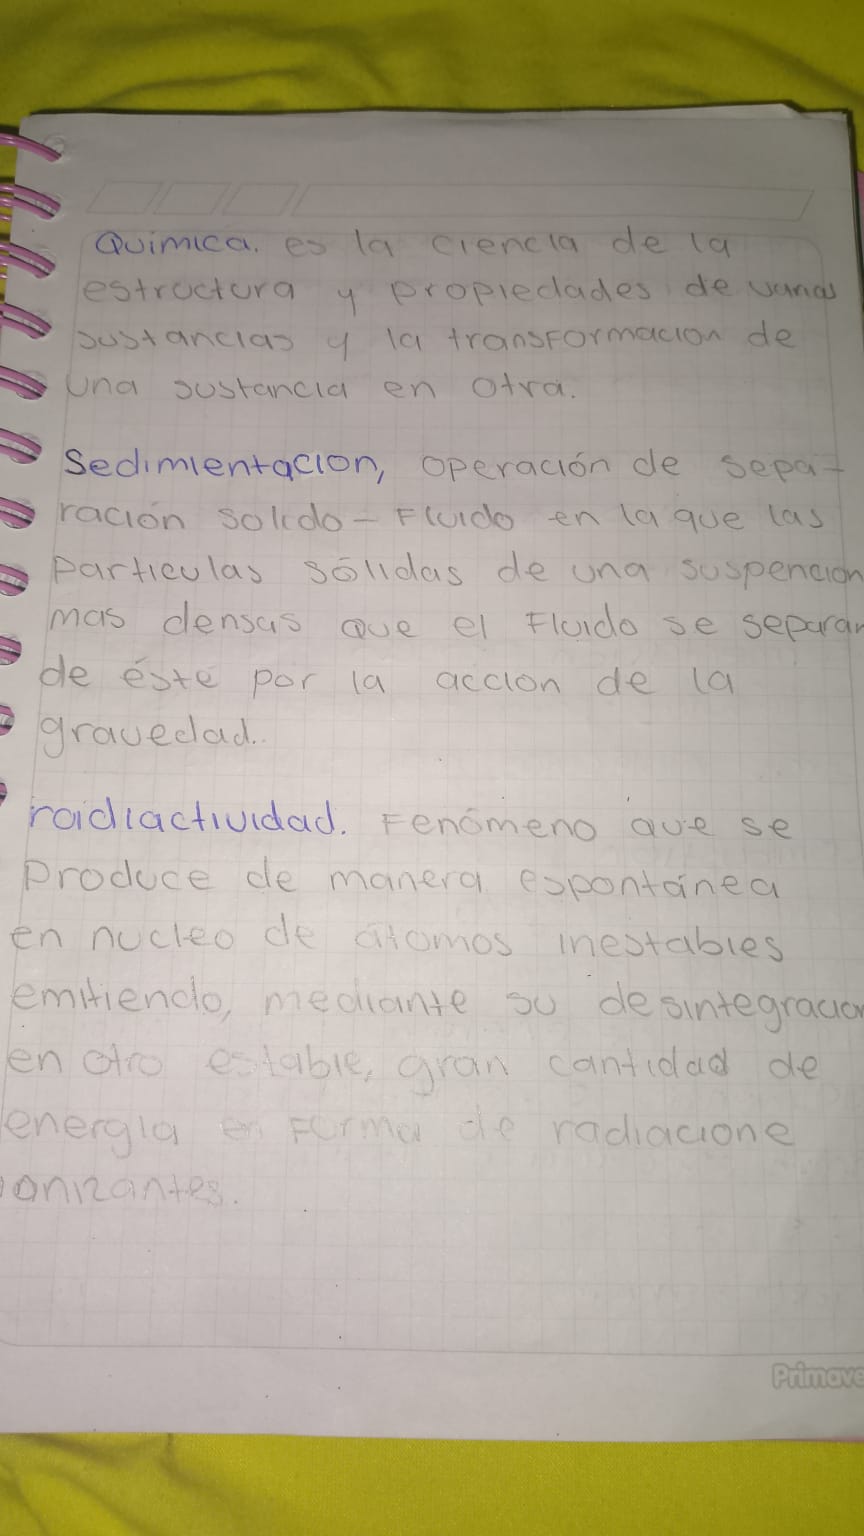 Quimica. es la ciencia de la
estructura y propiedades de varias
sustancias y la transformacion de
una sustancia en otra.
Sedimientacion, operación de sepa-
ración solido - Fluido en la que las
particulas sólidas de una suspencion
mas densas que el Fluido se separan
de éste por la accion de la
gravedad.
raidiactividad. Fenómeno que se
produce de manera espontánea
en nucleo de átomos inestables
emitiendo, mediante su desintegracion
en otro estable, gran cantidad de
energia en Forma de radiacione
ionizantes.
Primave